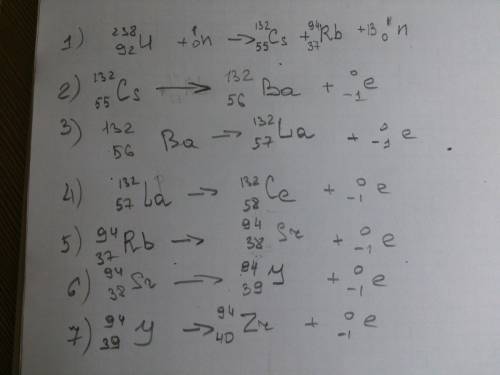 1) ²³⁸₉₂U + ¹₀n → ¹³²₅₅Cs + ⁹⁴₃₇Rb + 13 ¹₀n
2) ¹³²₅₅Cs → ¹³²₅₆Ba + ⁰₋₁e
3) ¹³²₅₆Ba → ¹³²₅₇La + ⁰₋₁e
4) ¹³²₅₇La → ¹³²₅₈Ce + ⁰₋₁e
5) ⁹⁴₃₇Rb → ⁹⁴₃₈Sr + ⁰₋₁e
6) ⁹⁴₃₈Sr → ⁹⁴₃₉Y + ⁰₋₁e
7) ⁹⁴₃₉Y → ⁹⁴₄₀Zr + ⁰₋₁e